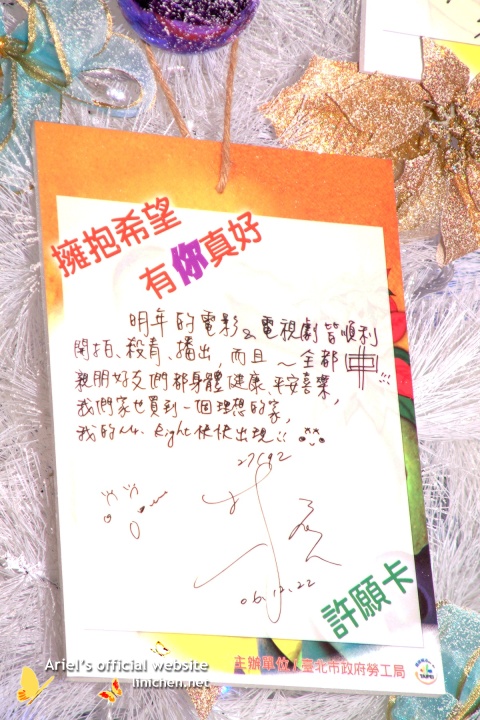 擁抱希望
有你真好
明年的電影&電視劇皆順利
開拍、殺青、播出,而且~全都中!!!
親朋好友們都身體健康、平安喜樂,
我們家也買到一個理想的家,
我的Mr. Right快快出現!!
06.12.22
許願卡
主辦單位|臺北市政府勞工局
TAIPEI
Ariel's official website
linichen.net